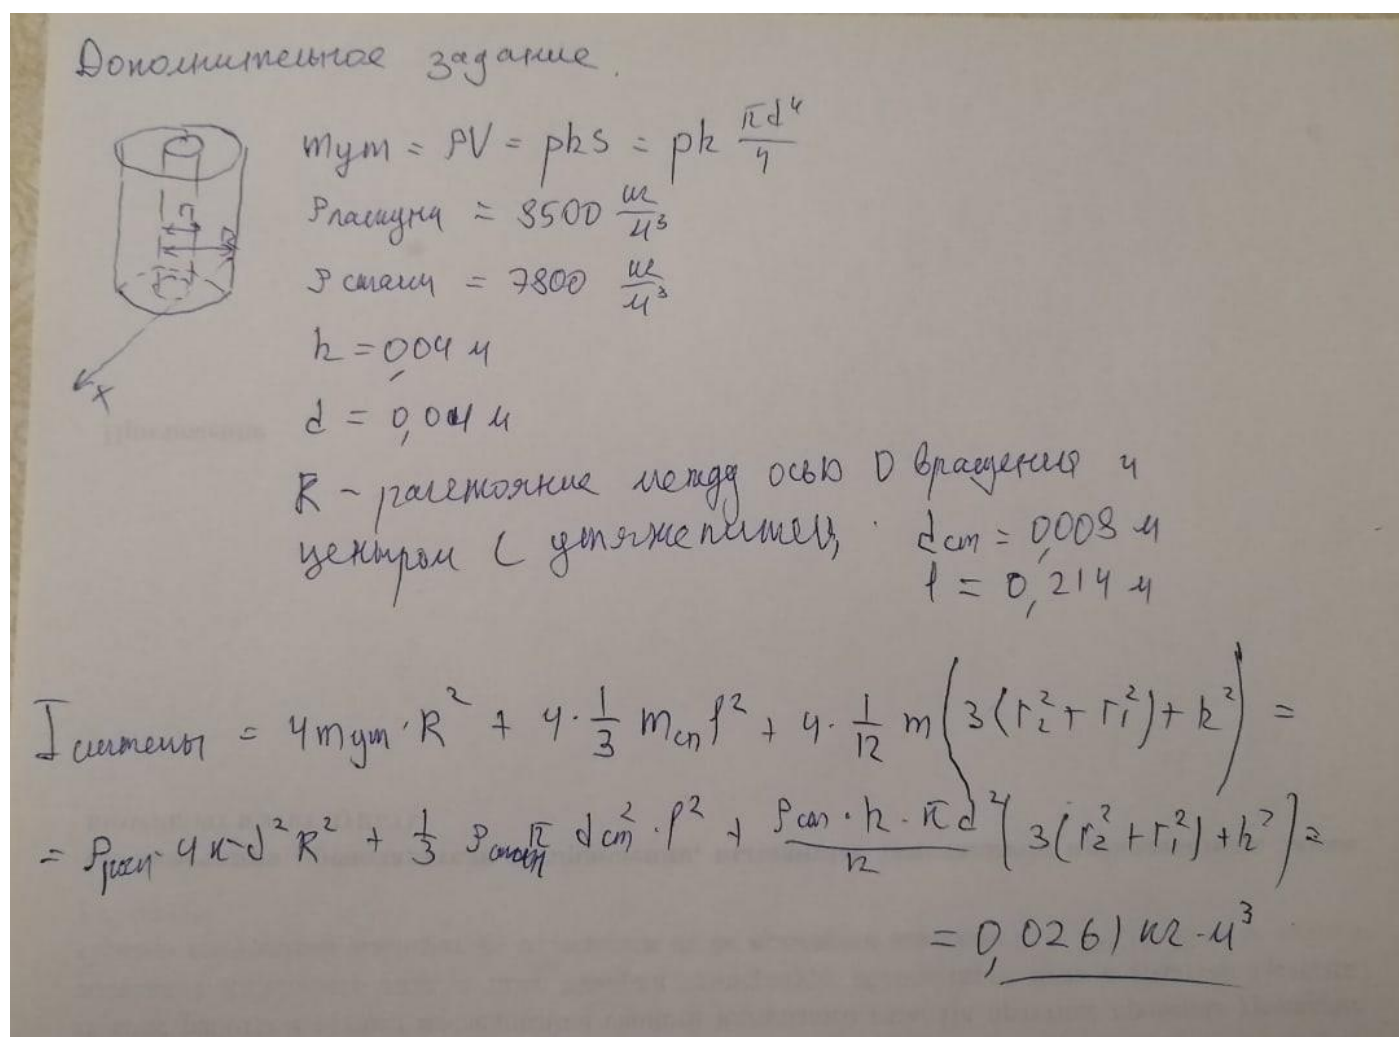 Дополнительное задание.
m ут = ρV = ρhS = ρh πd⁴/4
ρ латуни = 8500 кг/м³
ρ стали = 7800 кг/м³
h = 0,04 м
d = 0,04 м
R - расстояние между осью О вращения и
центром С утяжелителей,
d ст = 0,008 м
l = 0,214 м
x
I системы = 4 m ут · R² + 4 · 1/3 m сп l² + 4 · 1/12 m (3(r₂² + r₁²) + h²) =
R² + 1/3 ρ стали π d ст² · l² + (3(r₂² + r₁²) + h²) =
= 0,0261 кг·м³